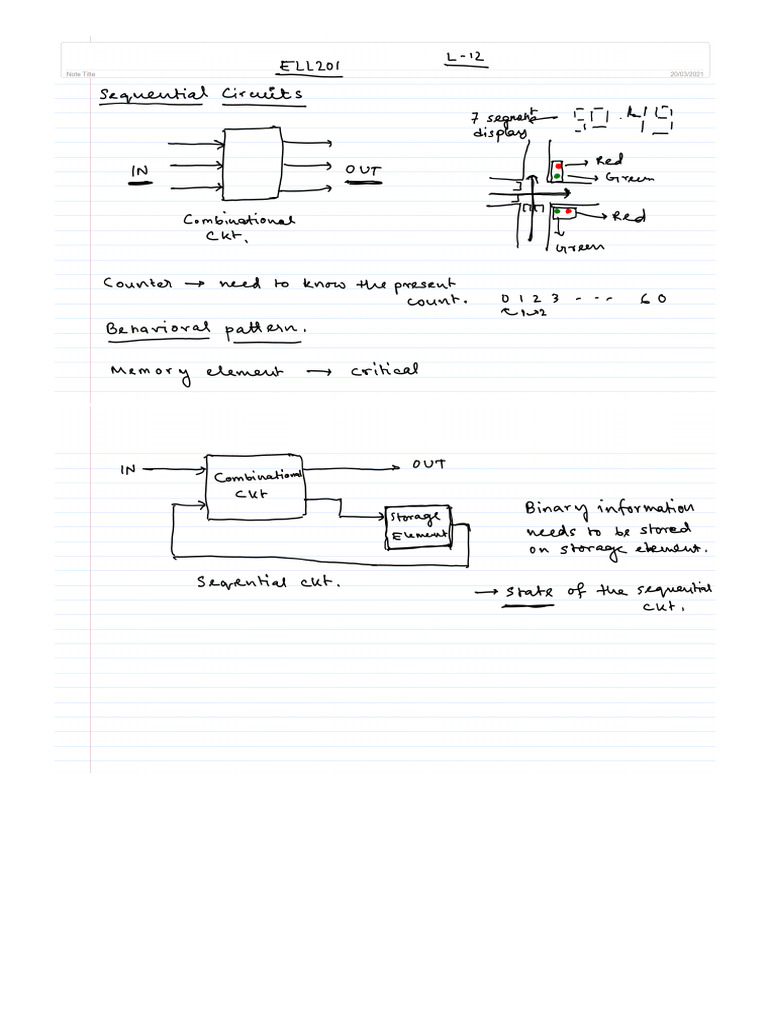 ELL201
L-12
Note Title
20/03/2021
Sequential Circuits
7 segment
display
IN
OUT
Combinational
Ckt.
Red
Green
Red
Green
Counter → need to know the present
count.
0 1 2 3 - - - 60
1→2
Behavioral pattern.
Memory element → critical
IN
Combinational
Ckt
OUT
Storage
Element
Sequential ckt.
Binary information
needs to be stored
on storage element.
→ state of the sequential
ckt.